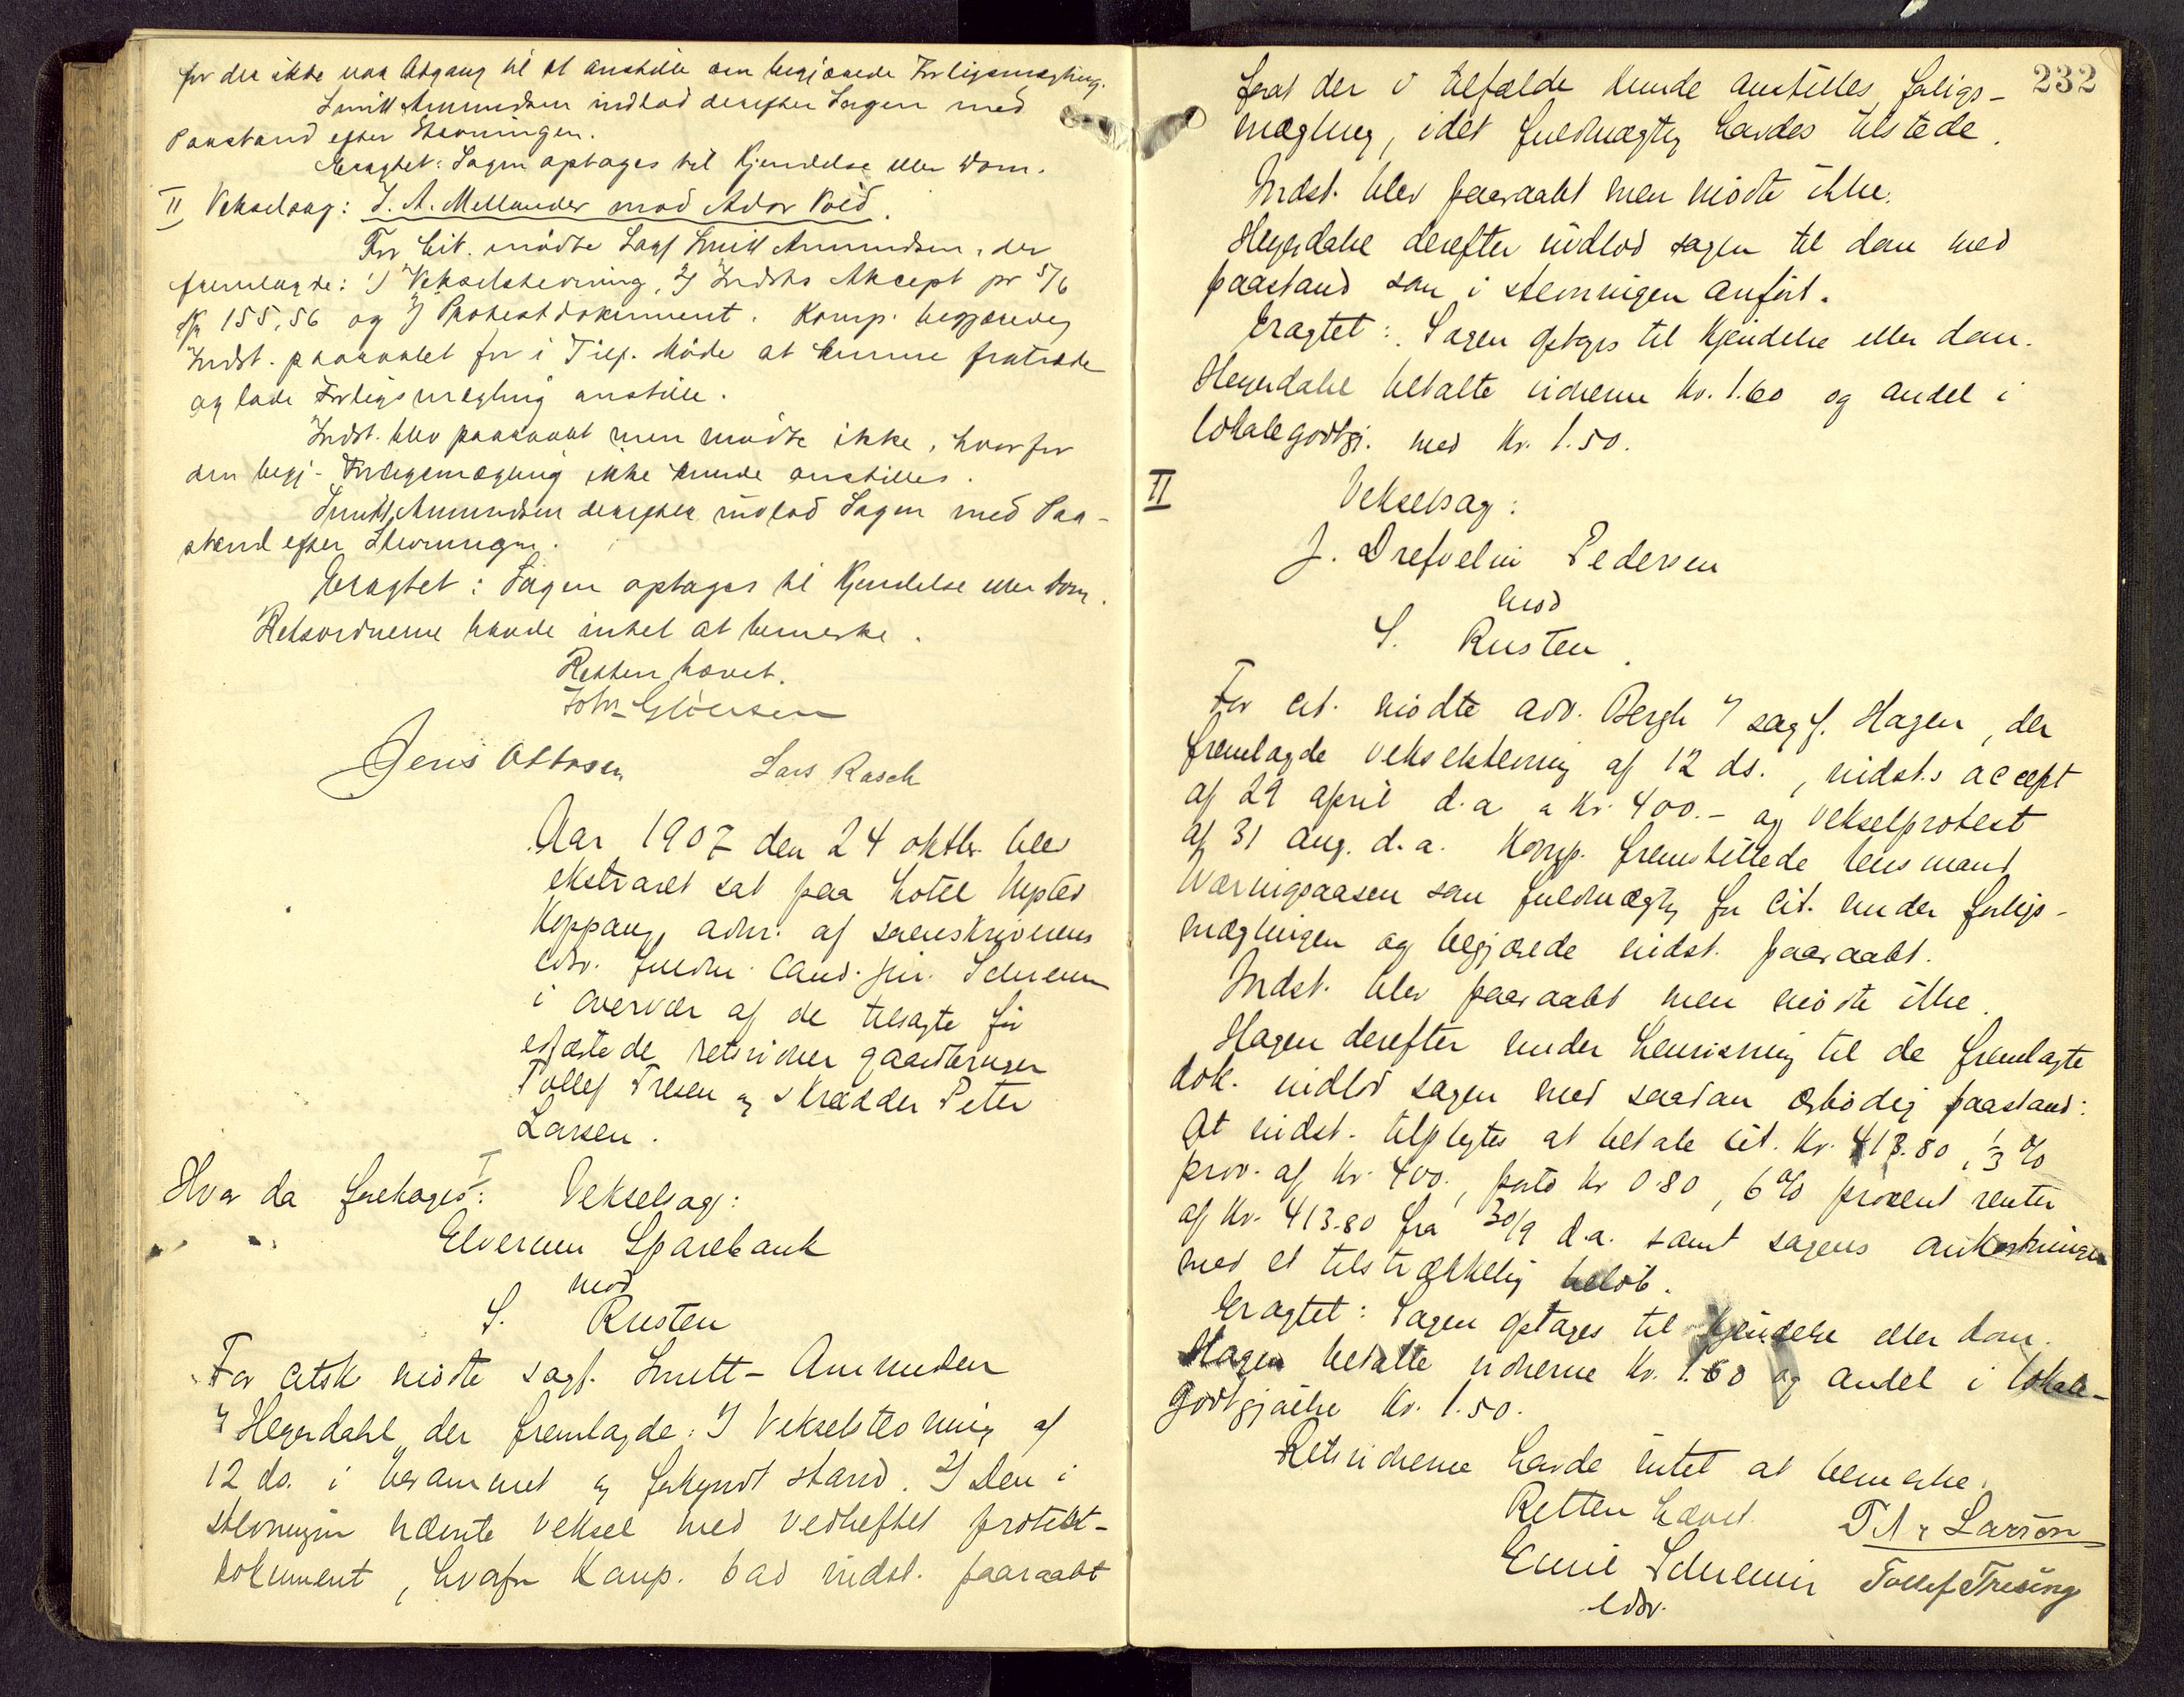 for der ikke var Adgang til at anstille den begjærede Forligsmægling.
Smitt Amundsen indlod derefter Sagen med
Paastand efter Stevningen.
Eragtet: Sagen optages til Kjendelse eller Dom.
II Vekselsag: J. A. Mellander mod Ador Void.
For Cit. mødte Sagf Smitt Amundsen, der
fremlagde: 1) Vekselstevning, 2) Indsts Akcept pr 5/6
Kr 155,56 og 3) Protestdokument. Komp. begjærede
Indst. paaraabt for i Tilf. Møde at kunne fratræde
og lade Forligsmægling anstille.
Indst. blev paaraabt men mødte ikke, hvorfor
den begj. Forligsmægling ikke kunde anstilles.
Smitt Amundsen derefter indlod Sagen med Paa-
stand efter Stevningen.
Eragtet: Sagen optages til Kjendelse eller Dom.
Retsvidnerne havde intet at bemerke.
Retten hævet.
Jens Ottosen Lars Rasch
Aar 1907 den 24 oktbr. blev
ekstraret sat paa hotel
Koppang, adm. af sorenskriverens
edsv. fuldm. cand. jur. Schrem
i overvær af de tilsagte før
edfæstede retsvidner gaardbruger
Tollef Treen og skrædder Peter
Larsen.
Hvor da foretoges: I Vekselsag:
Elverum Sparebank
mod
S. Rusten
For citsk mødte sagf. Smitt-Amundsen
v/ Heyerdahl der fremlagde: 1) Vekselstevning af
12 ds. i berammet og forkyndt stand. 2) Den i
stevningen nævnte veksel med vedheftet protest-
dokument, hvorfor Komp. bad indst. paaraabt
232
forat der i tilfælde kunde anstilles forligs-
mægling, idet fuldmægtig havdes tilstede.
Indst. blev paaraabt men mødte ikke.
Heyerdahl derefter indlod sagen til dom med
paastand som i stevningen anført.
Eragtet: Sagen optages til kjendelse eller dom.
Heyerdahl betalte vidnerne kr. 1.60 og andel i
lokalegodtgj. med kr. 1.50.
II Vekselsag:
J. Drefvelin Pedersen
mod
S. Rusten.
For cit. mødte adv. Bergh v/ sagf. Hagen, der
fremlagde vekselstevning af 12 ds., indst.s accept
af 29 april d.a. a kr. 400.- og vekselprotest
af 31 aug. d.a. Komp. fremstillede lensmand
Wærningsaasen som fuldmægtig for cit. under forligs-
mæglingen og begjærede indst. paaraabt.
Indst. blev paaraabt men mødte ikke.
Hagen derefter under henvisning til de fremlagte
dok. indlod sagen med saadan ærbødig paastand:
At indst. tilpligtes at betale cit. kr. 413.80, 1/3 %
prov. af kr. 400., porto kr 0.80, 6 % procent renter
af kr. 413.80 fra 30/9 d.a. samt sagens omkostninger
med et tilstrækkelig beløb.
Eragtet: Sagen optages til kjendelse eller dom.
Hagen betalte vidnerne kr. 1.60 og andel i lokale-
godtgjørelse kr. 1.50.
Retsvidnerne havde intet at bemerke.
Retten hævet. P A Larsen
Emil Schrem Tollef Tresing
edsv.